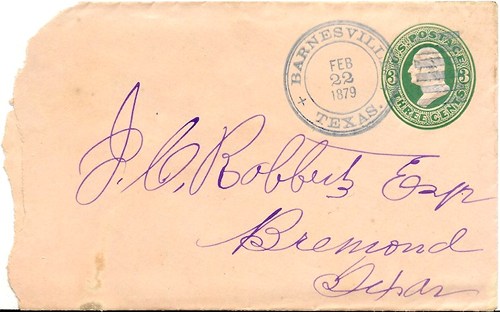 BARNESVILLE
FEB
22
1879
TEXAS.
U.S. POSTAGE
THREE CENTS
3 3
J. C. Robberts Esqr
Bremond
Texas